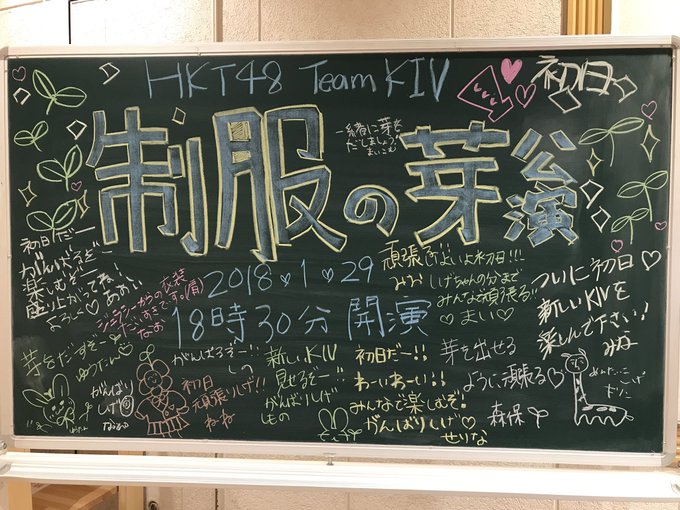 HKT48 Team KIV
初日
制服の芽公演
一緒に芽を
だしましょう
まいこむ
2018・1・29
18時30分開演
初日だー
がんばるぞー
楽しむぞー!
盛り上がってね!
よろしく♡
頑張るばいよ初日!!!
みお
しげちゃんの分まで
みんなで頑張る!
♡まい♡
ついに初日♡
新しいKIVを
楽しんで下さい!
みな
芽をだすぞー
ゆうたん♡
がんばり
しげ
初日
頑張りしげ!!
ねね
がんばるぞー!!
しの
新しいKIV
見せるぞー!!
がんばりしげ
もの
初日だー!!
わーいわーい!!
みんなで楽しむぞ!
がんばりしげ♡
せりな
芽を出せる
ように頑張る♡
森保